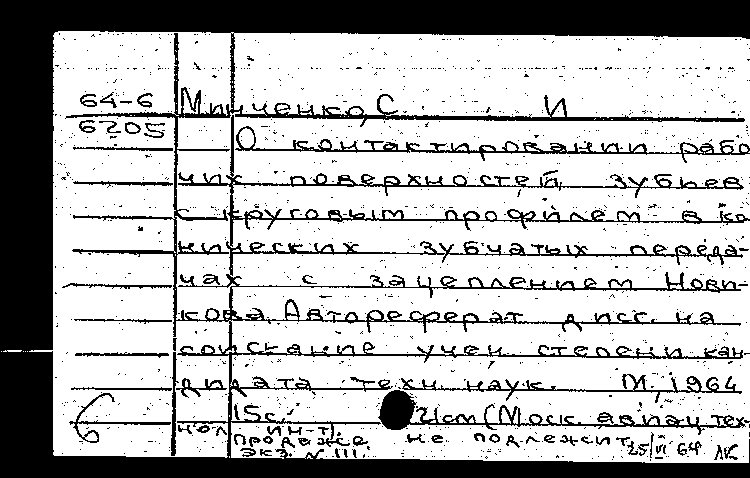 64-6 Минченко, С. И
6205 О контактировании рабо
чих поверхностей зубьев
с круговым профилем в ко
нических зубчатых переда-
чах с зацеплением Нови-
кова. Автореферат дисс. на
соискание учен степени кан-
дидата техн. наук. М., 1964
15 с. 21 см (Моск. авиац тех-
нол ин-т).
продаже не подлежит
экз. N III. 25/VI 64
6